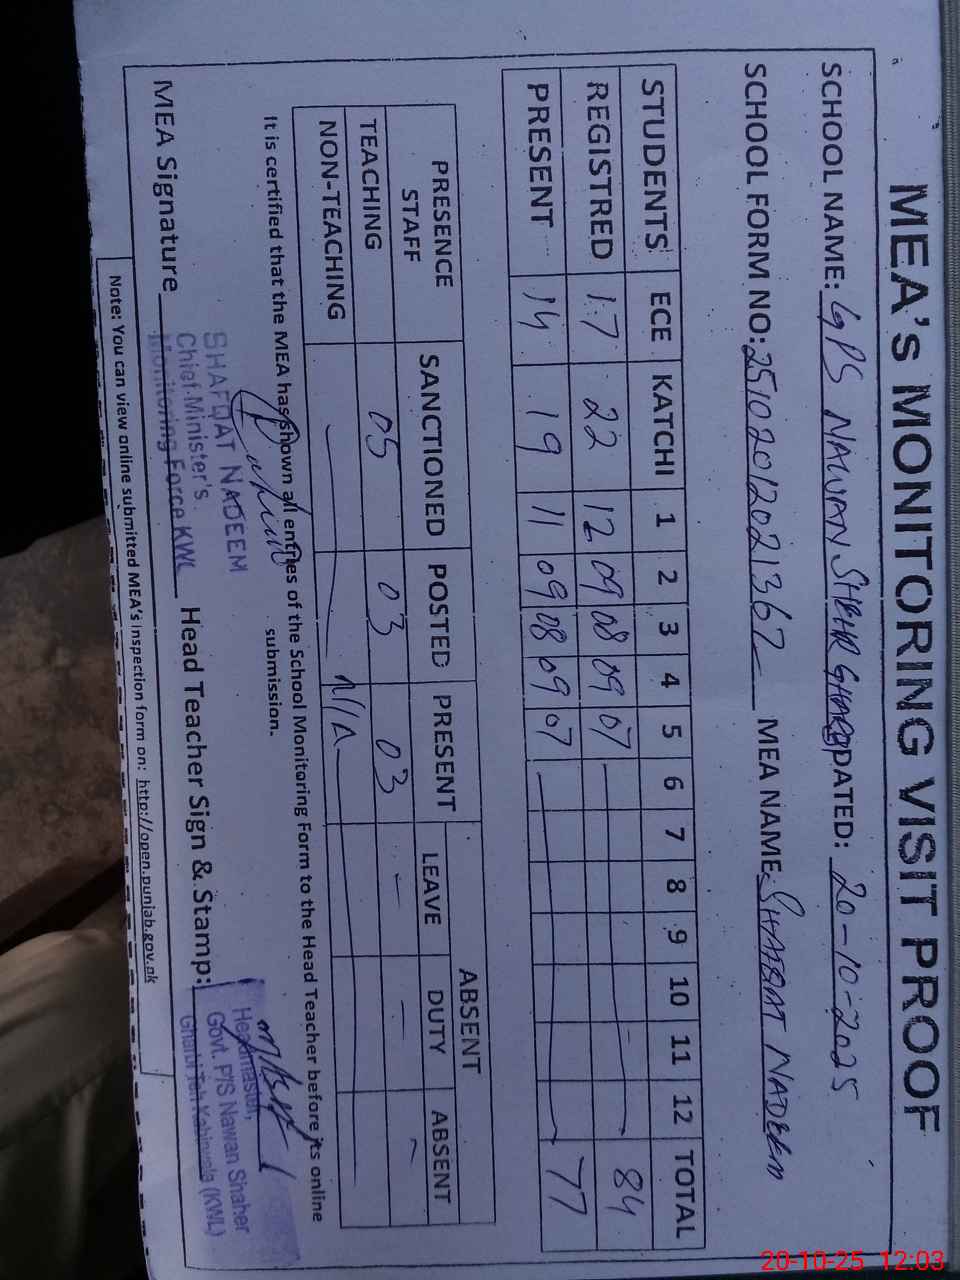 MEA's MONITORING VISIT PROOF
SCHOOL NAME: GPS NAWAN SHEHR GHARBI DATED: 20-10-2025
SCHOOL FORM NO: 251020120213 67 MEA NAME: SHAFQAT NADEEM
STUDENTS ECE KATCHI 1 2 3 4 5 6 7 8 9 10 11 12 TOTAL
REGISTRED 17 22 12 09 08 09 07 84
PRESENT 14 19 11 09 08 09 07 77
PRESENCE STAFF SANCTIONED POSTED PRESENT ABSENT
LEAVE DUTY ABSENT
TEACHING 05 03 03 - - -
NON-TEACHING N/A
It is certified that the MEA has shown all entries of the School Monitoring Form to the Head Teacher before its online
submission.
MEA Signature Head Teacher Sign & Stamp:
SHAFQAT NADEEM
Chief Minister's
Monitoring Force KWL
Headmaster,
Govt. P/S Nawan Shaher
Gharbi Teh Kabirwala (KWL)
Note: You can view online submitted MEA's inspection form on: http://open.punjab.gov.pk
20-10-25 12:03